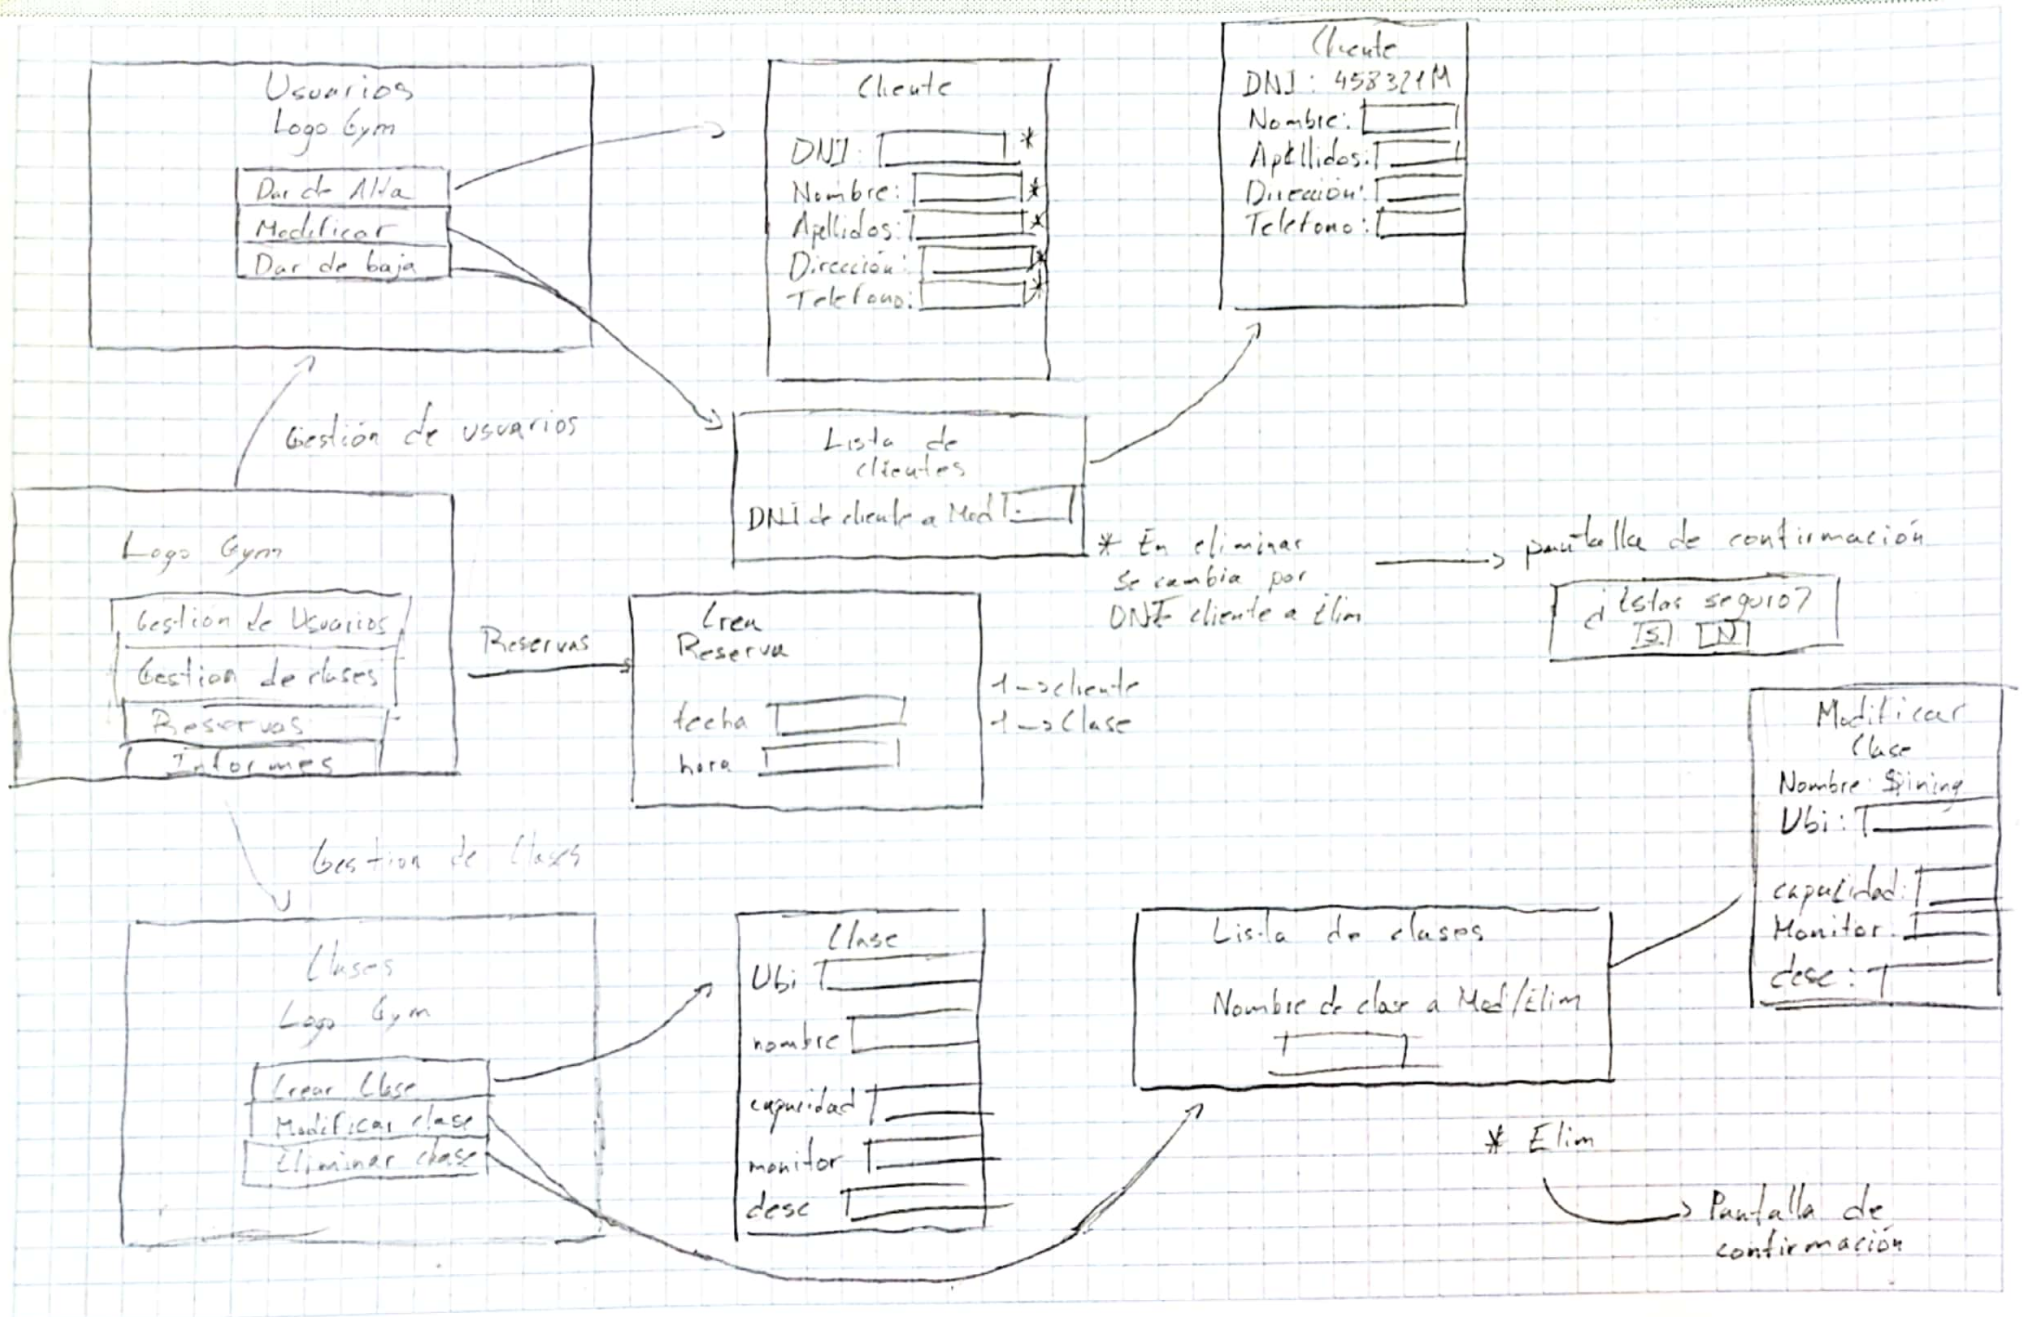 Usuarios
Logo Gym
Dar de Alta
Modificar
Dar de baja
Cliente
DNI: *
Nombre: *
Apellidos: *
Dirección: *
Telefono: *
Cliente
DNI: 458321M
Nombre:
Apellidos:
Dirección:
Telefono:
Gestión de usuarios
Lista de
clientes
DNI de cliente a Mod
* En eliminar
se cambia por
DNI cliente a Elim
pantalla de confirmación
¿Estas seguro?
S N
Logo Gym
Gestión de Usuarios
Gestion de clases
Reservas
Informes
Reservas
Crea
Reserva
fecha
hora
1 -> cliente
1 -> Clase
Modificar
Clase
Nombre: Spining
Ubi:
capacidad:
Monitor:
desc:
Gestion de Clases
Clases
Logo Gym
Crear Clase
Modificar clase
Eliminar clase
Clase
Ubi
nombre
capacidad
monitor
desc
Lista de clases
Nombre de clase a Mod/Elim
* Elim
Pantalla de
confirmación